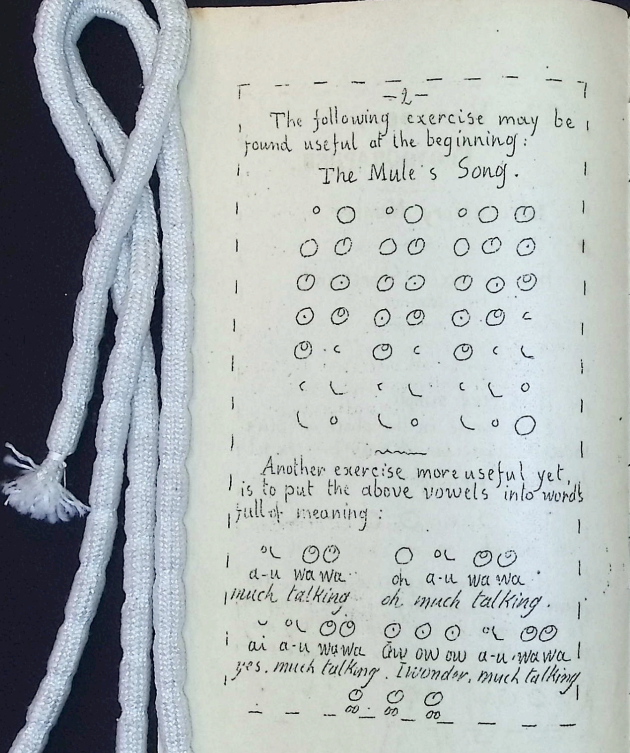 -2-
The following exercise may be
found useful at the beginning:
The Mule's Song.
Another exercise more useful yet,
is to put the above vowels into words
full of meaning:
a-u wawa oh a-u wawa
much talking oh much talking.
ai a-u wawa ow ow a-u-wawa
yes. much talking. I wonder, much talking